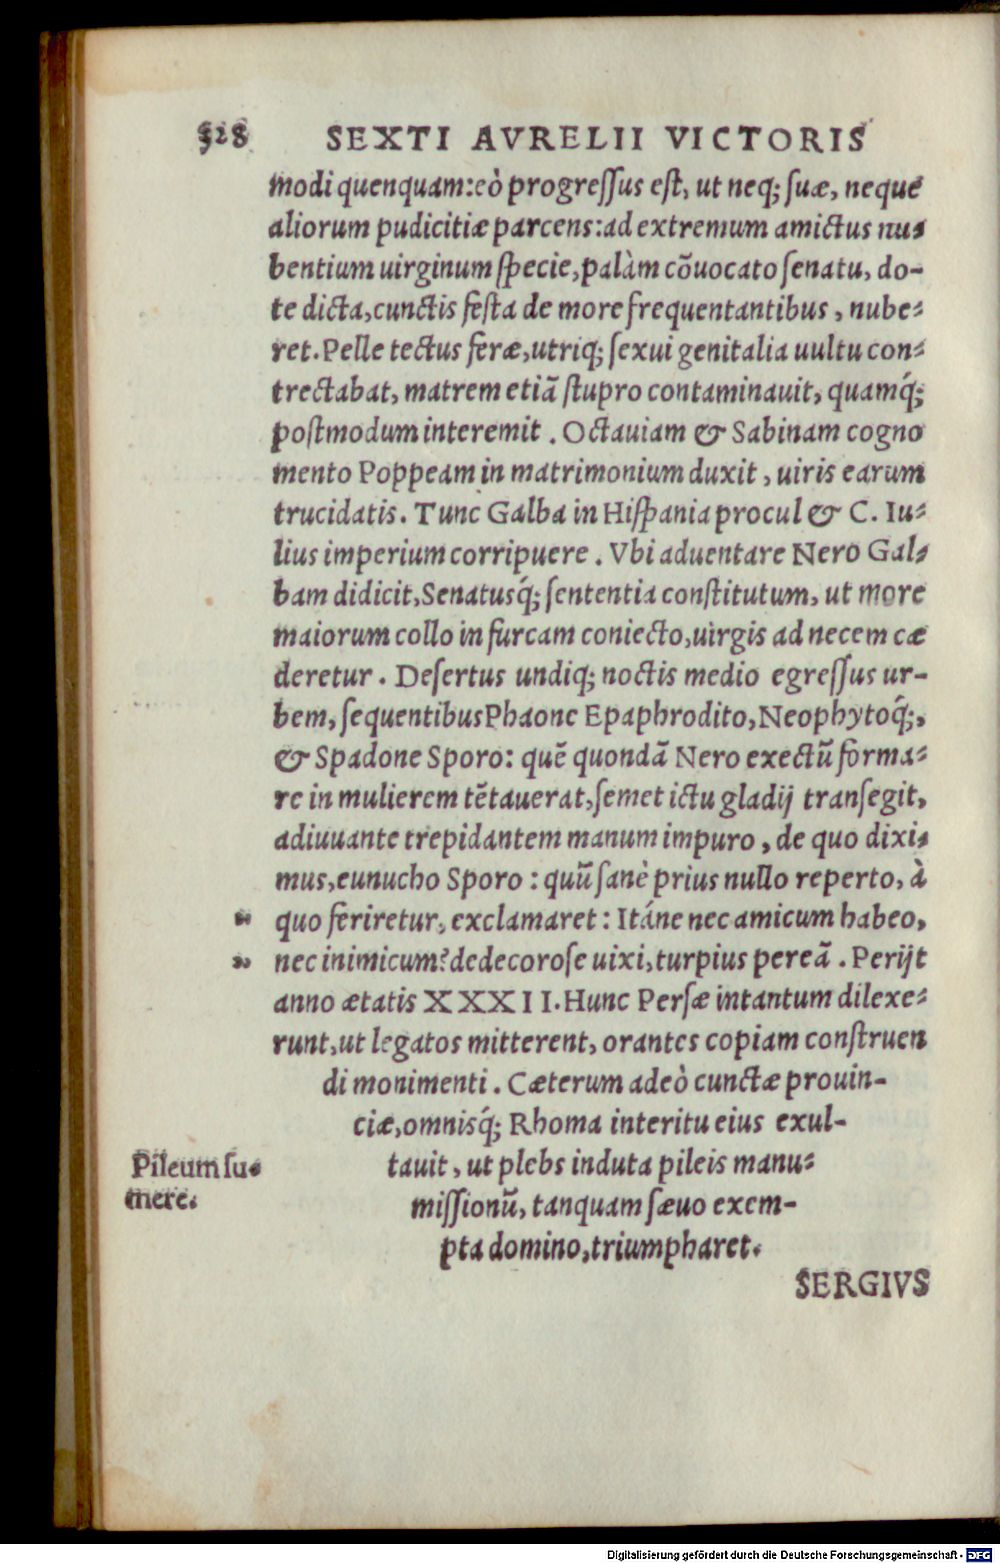 328 SEXTI AVRELII VICTORIS
modi quenquam: eò progreſſus eſt, ut neq; ſuæ, neque
aliorum pudicitiæ parcens: ad extremum amictus nu-
bentium uirginum ſpecie, palàm cōuocato ſenatu, do-
te dicta, cunctis feſta de more frequentantibus, nube-
ret. Pelle tectus feræ, utriq; ſexui genitalia uultu con-
trectabat, matrem etiā ſtupro contaminauit, quamq́;
poſtmodum interemit. Octauiam & Sabinam cogno
mento Poppeam in matrimonium duxit, uiris earum
trucidatis. Tunc Galba in Hiſpania procul & C. Iu-
lius imperium corripuere. Vbi aduentare Nero Gal-
bam didicit, Senatusq́; ſententia conſtitutum, ut more
maiorum collo in furcam coniecto, uirgis ad necem cæ
deretur. Deſertus undiq; noctis medio egreſſus ur-
bem, ſequentibus Phaonc Epaphrodito, Neophytoq́;,
& Spadone Sporo: quē quondā Nero exectū forma-
re in mulierem tētauerat, ſemet ictu gladij tranſegit,
adiuuante trepidantem manum impuro, de quo dixi-
mus, eunucho Sporo: quū ſanè prius nullo reperto, à
" quo feriretur, exclamaret: Itáne nec amicum habeo,
" nec inimicum? dedecoroſe uixi, turpius pereā. Perijt
anno ætatis XXXII. Hunc Perſæ intantum dilexe-
runt, ut legatos mitterent, orantes copiam conſtruen
di monimenti. Cæterum adeò cunctæ prouin-
ciæ, omnisq́; Rhoma interitu eius exul-
Pileum ſu- tauit, ut plebs induta pileis manu-
mere. miſſionū, tanquam ſæuo exem-
pta domino, triumpharet.
SERGIVS
Digitalisierung gefördert durch die Deutsche Forschungsgemeinschaft - DFG